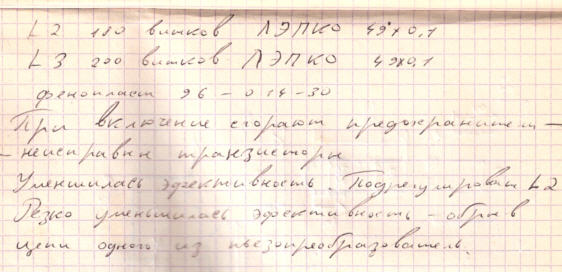 L2 180 витков ЛЭПКО 49x0,1
L3 200 витков ЛЭПКО 49x0,1
фенопласт 96-014-30
При включение сгорают предохранители-
-неисправн транзисторы
Уменшилась эфективность. Подрегулировать L2
Резко уменьшилась эфективность - обрыв
цепи одного из пьезопреобразователь.